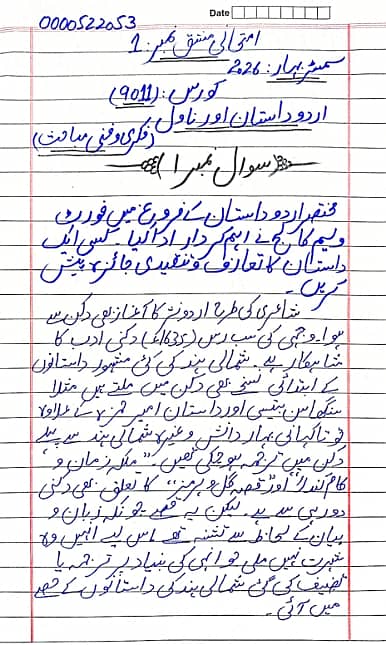 0000522053
Date
امتحانی مشق نمبر: 1
سمسٹر بہار: 2026
کورس: (9011)
اردو داستان اور ناول
(فکری و فنی مباحث)
سوال نمبر 1
مختصر اردو داستان کے فروغ میں فورٹ
ولیم کالج نے اہم کردار ادا کیا۔ کسی ایک
داستان کا تعارف و تنقیدی جائزہ پیش
کریں۔
شاعری کی طرح اردو نثر کا آغاز بھی دکن سے
ہوا۔ وجہی کی سب رس (1635ء) دکنی ادب کا
شاہکار ہے۔ شمالی ہند کی کئی مشہور داستانوں
کے ابتدائی نسخے بھی دکن میں ملتے ہیں مثلاً
سنگھاسن بتیسی اور داستان امیر حمزہ کے علاوہ
طوطا کہانی، بہار دانش وغیرہ شمالی ہند سے پہلے
دکن میں ترجمہ ہو چکی تھیں۔ "ملکہ زمان و
کام کندلا" اور "قصہ گل و ہرمز" کا تعلق بھی دکنی
دور ہی سے ہے۔ لیکن یہ قصے چونکہ زبان و
بیان کے لحاظ سے تشنہ تھے اس لیے انہیں وہ
شہرت نہیں ملی جو انہی کی بنیاد پر ترجمہ یا
تصنیف کی گئی شمالی ہند کی داستانوں کے حصے
میں آئی۔